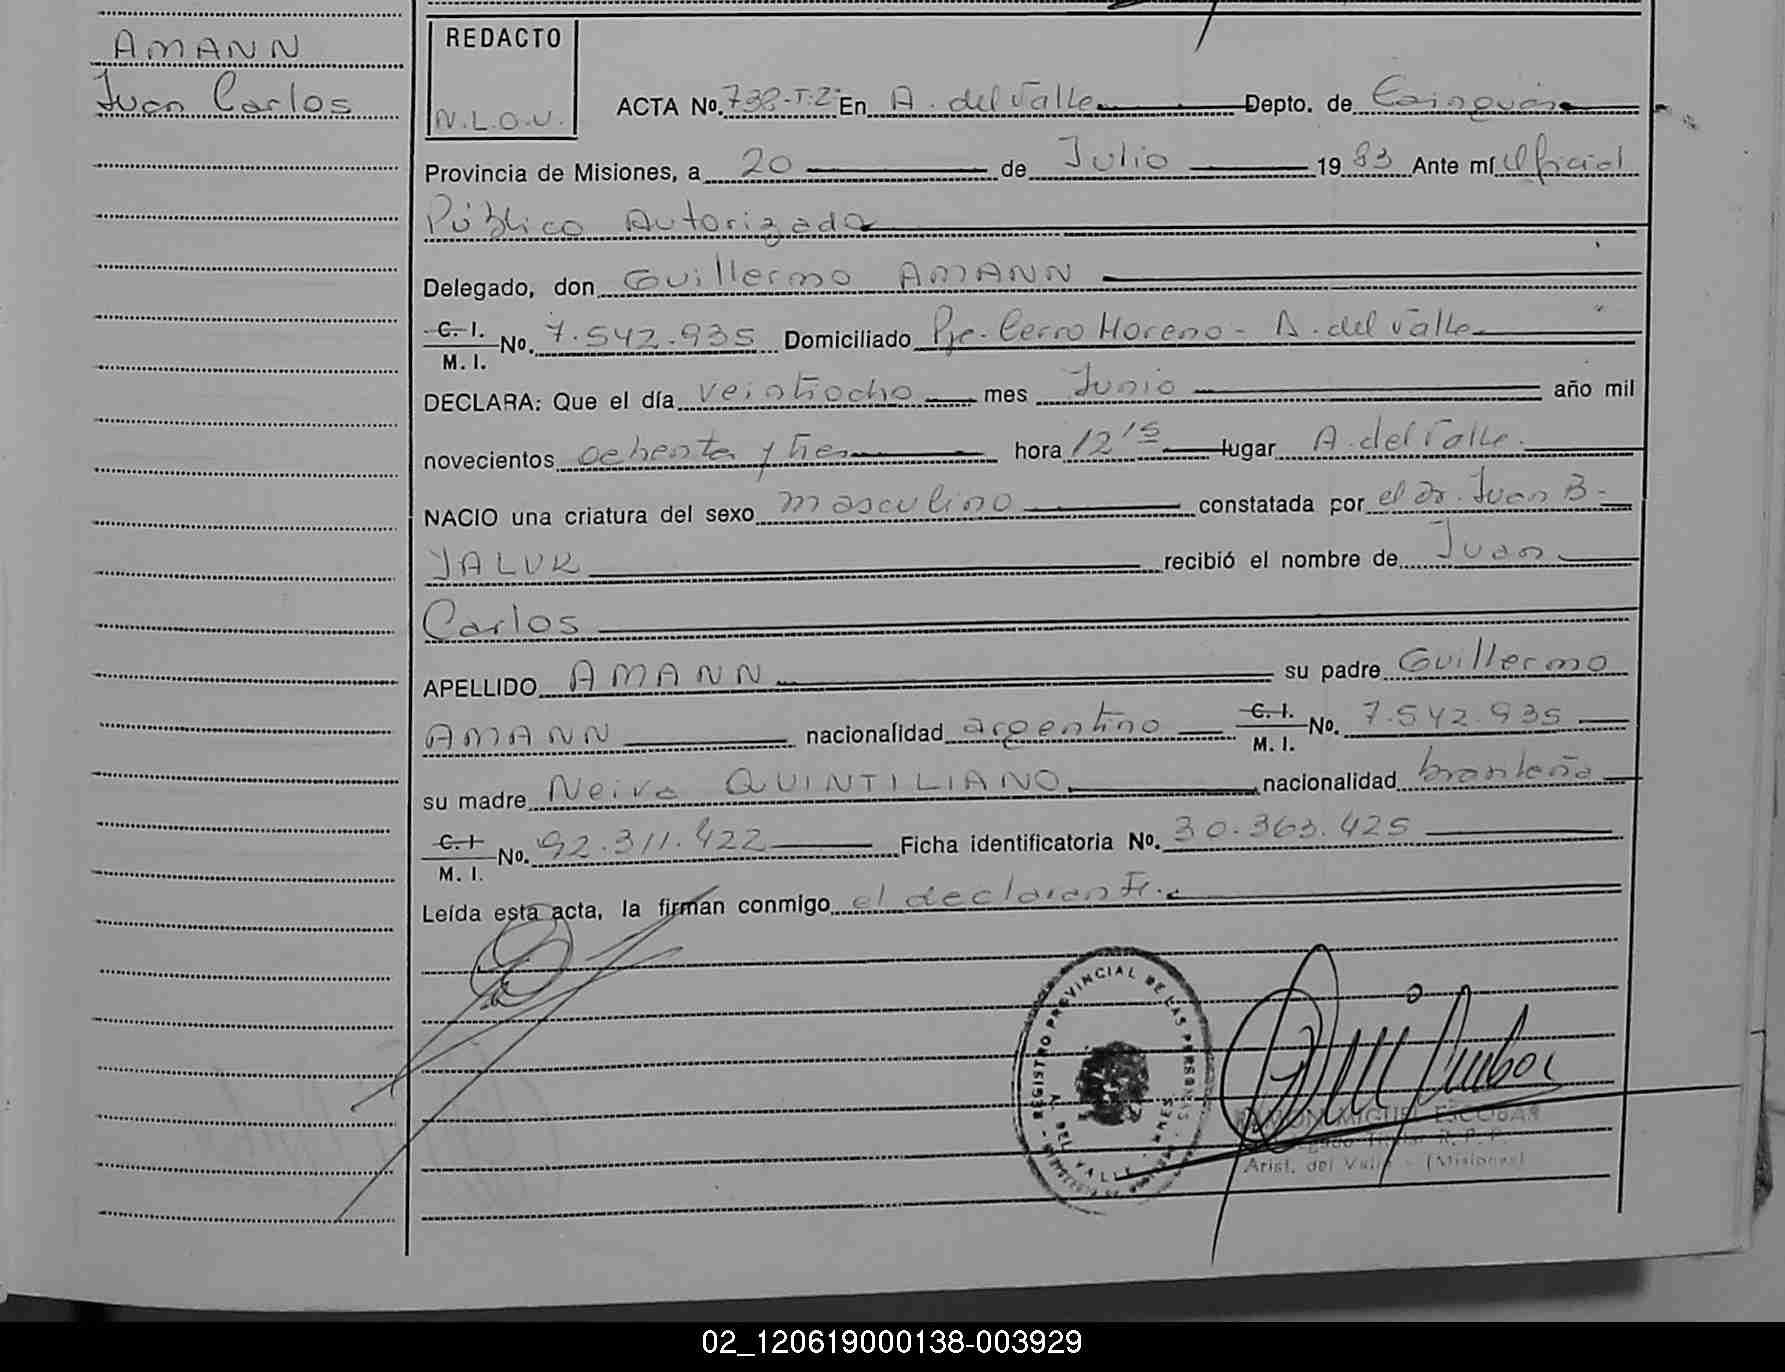 AMANN
Juan Carlos
REDACTO
N.L.O.V.
ACTA No. 738-T:2- En A. del Valle Depto. de Cainguás
Provincia de Misiones, a 20 de Julio 1983 Ante mí Oficial
Público Autorizado
Delegado, don Guillermo AMANN
C. I. M. I. No. 7.542.935 Domiciliado Pje. Cerro Moreno - A. del Valle
DECLARA: Que el día veintiocho mes Junio año mil
novecientos ochenta y tres hora 12'15 lugar A. del Valle.
NACIO una criatura del sexo masculino constatada por el Dr. Juan B.
JALUK recibió el nombre de Juan
Carlos
APELLIDO AMANN su padre Guillermo
AMANN nacionalidad argentino C. I. M. I. No. 7.542.935
su madre Neiva QUINTILIANO nacionalidad brasileña
C. I M. I. No. 92.311.422 Ficha identificatoria No. 30.363.425
Leída esta acta, la firman conmigo el declarante.
REGISTRO PROVINCIAL DE LAS PERSONAS
A. DEL VALLE - MNES
RAMON MIGUEL ESCOBAR
Delegado Titular R. P. P.
Arist. del Valle - (Misiones)
02_120619000138-003929